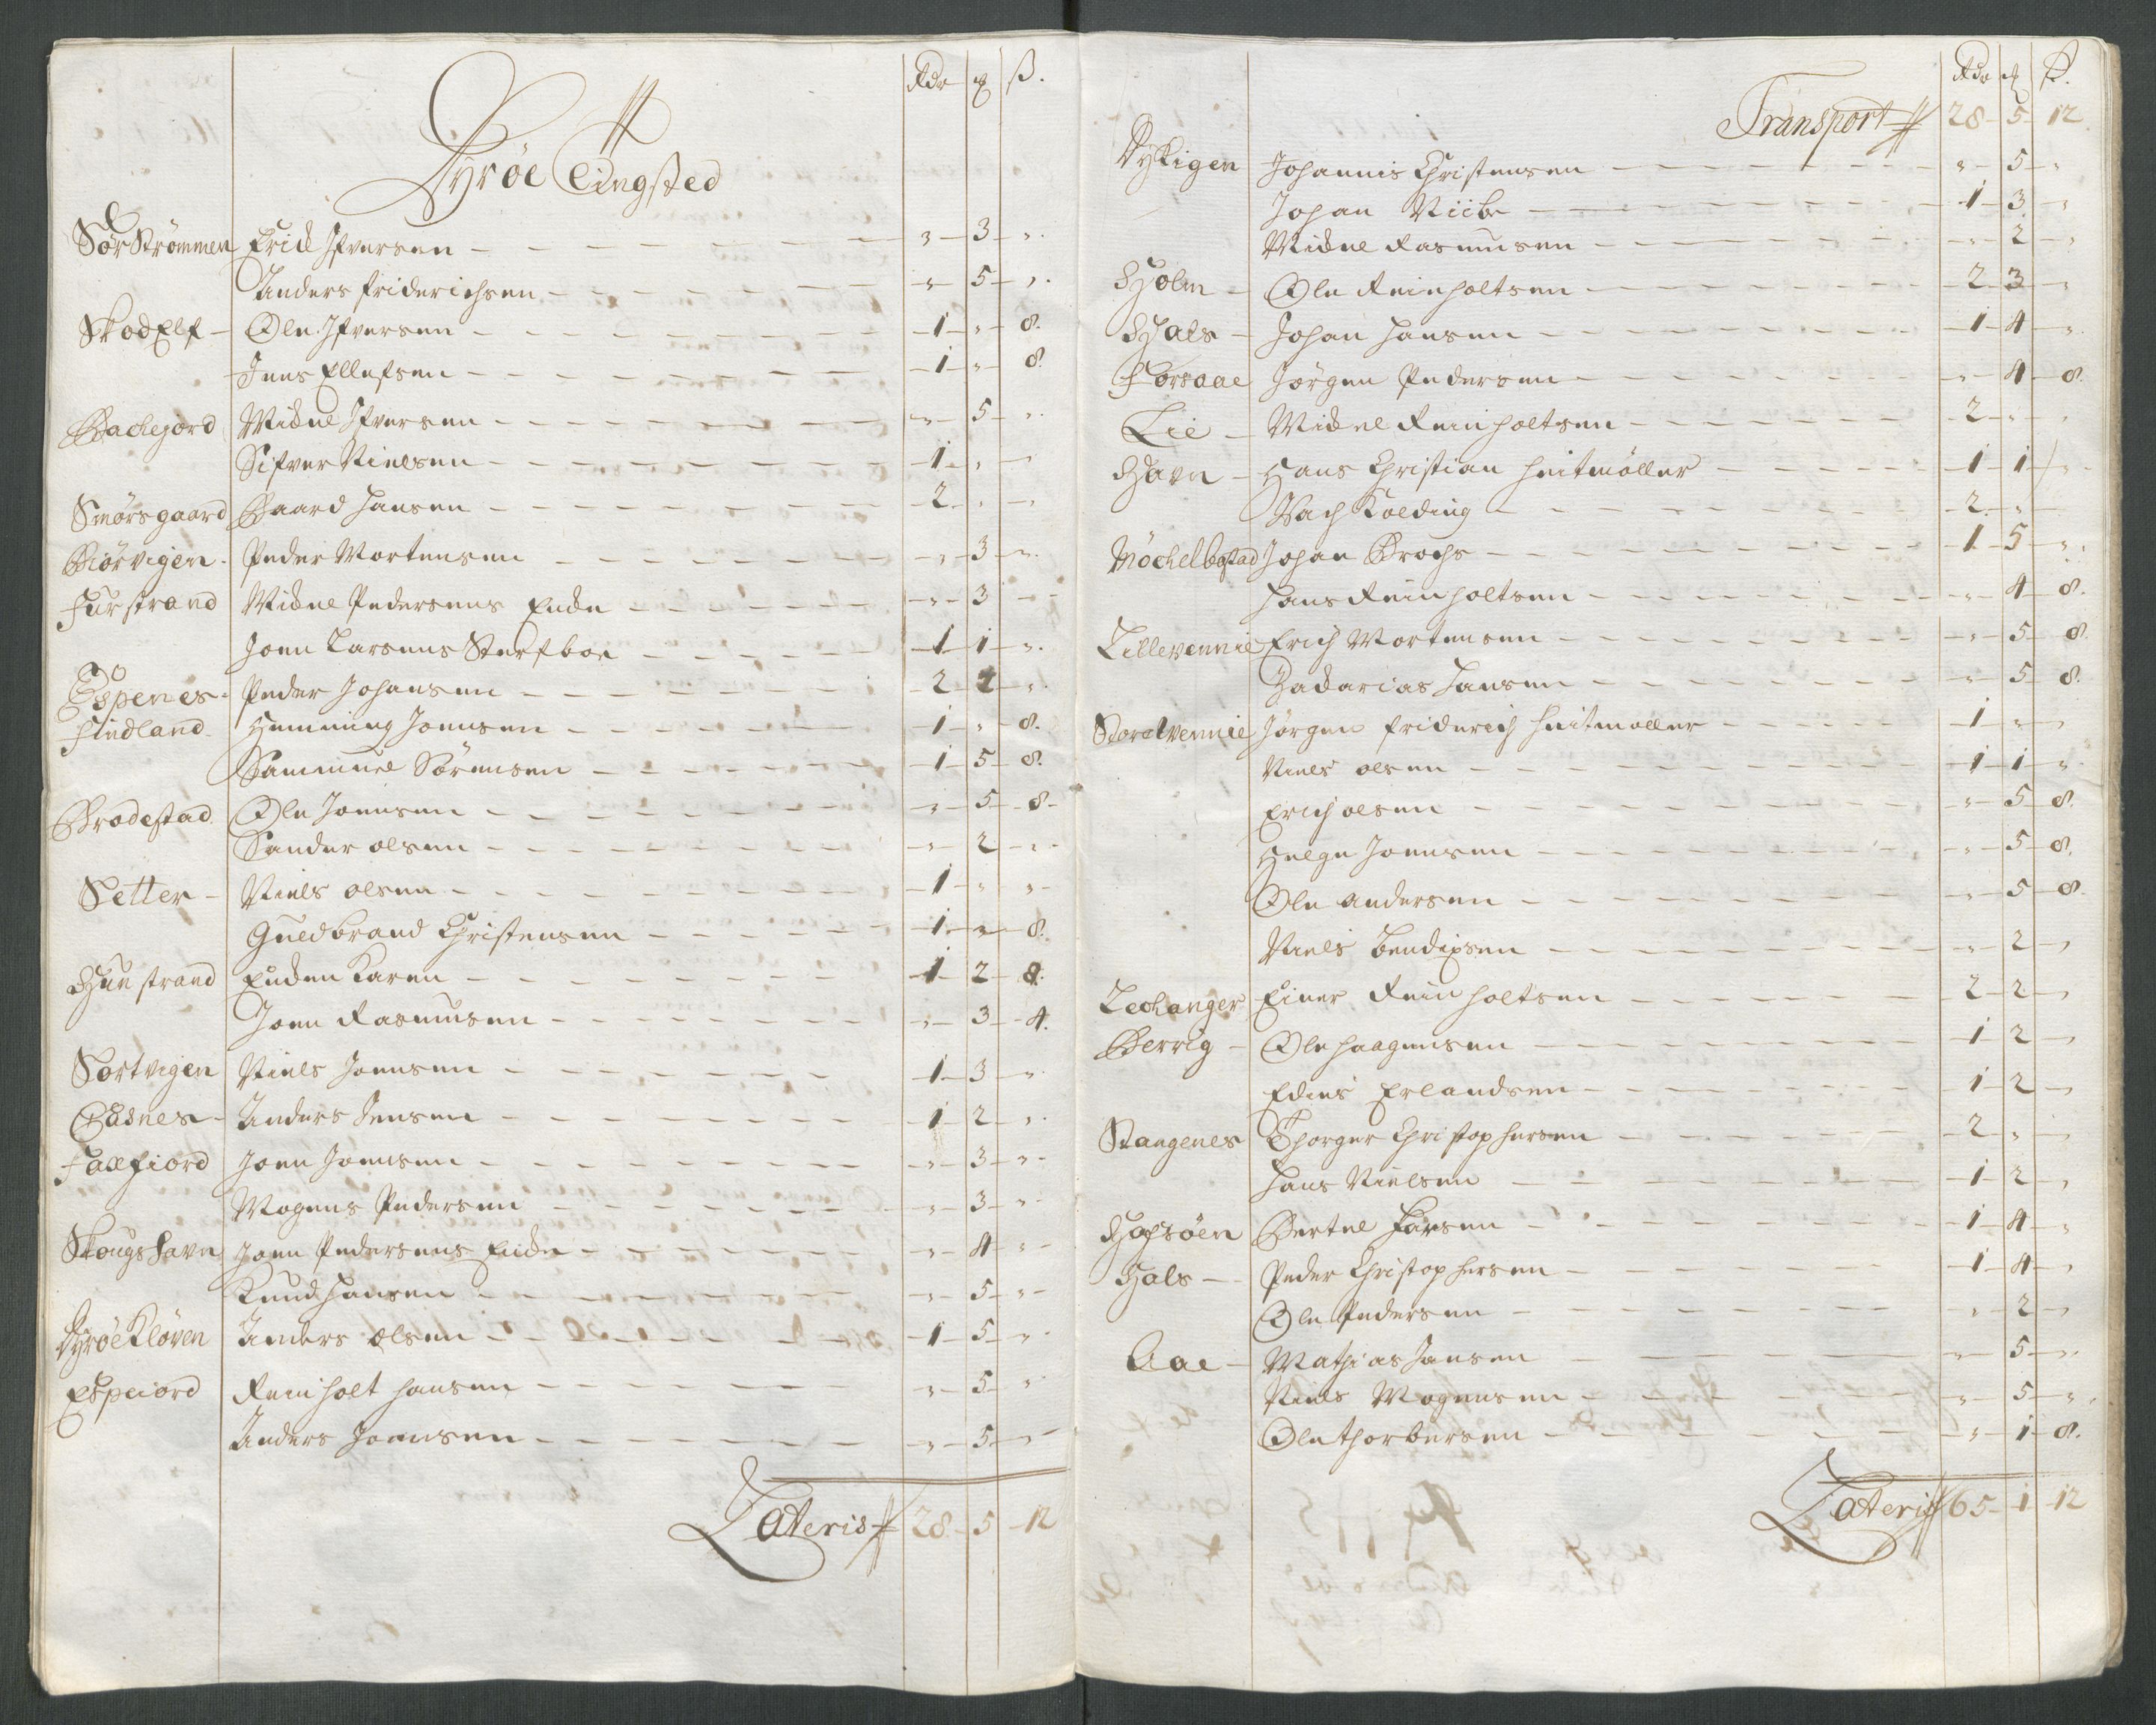 Rdr ȝ ß.
Dyröe Tingsted
SørStrømmen Erich Ifversen - " - 3 - "
Anders friderichsen - " - 5 - "
SkodElf - Ole Ifversen - 1 - " - 8.
Jens Ellefsen - 1 - " - 8.
Bachejord Michel Ifversen - " - 5 - "
Sifver Nielsen - 1 - " - "
Smörsgaard Baard Hansen - 2 - " - "
Biörvigen - Peder Mortensen - " - 3 - "
Furstrand Michel Pedersens Encke - " - 3 - "
Joen Larsens Sterfboe - 1 - 1 - "
Espenes - Peder Johansen - 2 - 2 - "
Findland - Hemming Joensen - 1 - " - 8.
Sammuel Sörensen - 1 - 5 - 8.
Brodestad Ole Joensen - " - 5 - 8 -
Sander olsen - " - 2 - "
Setter - Niels olsen - 1 - " - "
Guldbrand Christensen - 1 - " - 8.
Hunstrand Encken Karen - 1 - 2 - 8.
Joen Rasmusen - " - 3 - 4.
Sortvigen Niels Joensen - 1 - 3 - "
Giesnes - Anders Jensen - 1 - 2 - "
Faxfiord Joen Joensen - " - 3 - "
Mogens Pedersen - " - 3 - "
Skougshavn Joen Pedersens Encke - " - 4 - "
Knud Hansen - " - 5 - "
DyröeKlöven Anders olsen - 1 - 5 - "
Espeiord Reinholt hansen - " - 5 - "
Anders Joensen - " - 5 - "
Lateris 28 - 5 - 12
Rdr ȝ ß.
Transport 28 - 5 - 12
Dyrvigen Johannis Christensen - " - 5 - "
Johan Viibe - 1 - 3 - "
Michel Rasmusen - " - 2 - "
Holm - Ole Reinholtsen - 2 - 3 - "
Hals - Johan Hansen - 1 - 4 - "
Forsaae Jörgen Pedersen - " - 4 - 8.
Lie - Michel Reinholtsen - 2 - " - "
Havn - Hans Christian heitmöller - 1 - 1 - "
Isach Kolding - 2 - " - "
Möckelbostad Johan Brochs - 1 - 5 - "
Hans Reinholtsen - " - 4 - 8.
Lillevennie Erich Mortensen - " - 5 - 8.
Zacharias Hansen - " - 5 - 8.
Storevennie Jörgen friderich heitmöller - 1 - " - "
Niels olsen - 1 - 1 - "
Erich olsen - " - 5 - 8.
Helge Joensen - " - 5 - 8.
Ole andersen - " - 5 - 8.
Niels bendixsen - " - 2 - "
Leckanger Einer Reinholtsen - 2 - 2 - "
Berrig - Ole haagensen - 1 - 2 - "
Edius Erlandsen - 1 - 2 - "
Stangenes Thorger Christophersen - 2 - " - "
Hans Nielsen - 1 - 2 - "
Hofsöen Bertel Larsen - 1 - 4 - "
Hals - Peder Christophersen - 1 - 4 - "
Ole Pedersen - " - 2 - "
Aae - Mathias Jansen - " - 5 - "
Niels Mogensen - " - 5 - "
Ole thorbersen - " - 1 - 8.
Lateris 65 - 1 - 12